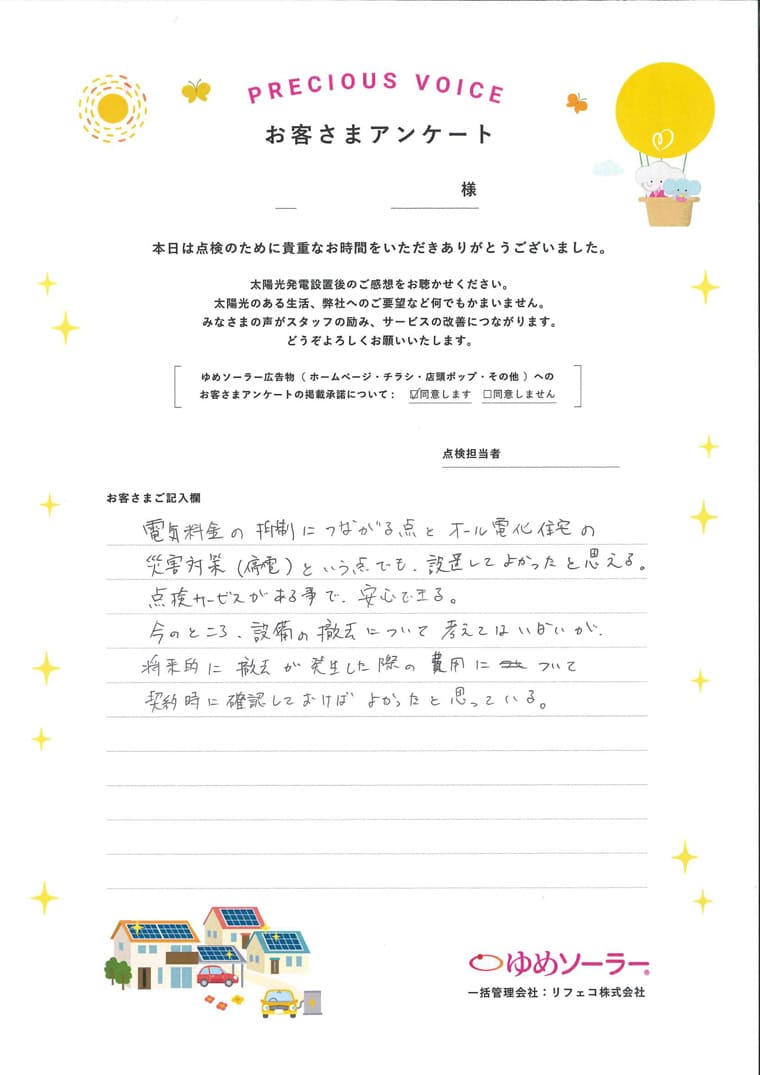 PRECIOUS VOICE
お客さまアンケート
様
本日は点検のために貴重なお時間をいただきありがとうございました。
太陽光発電設置後のご感想をお聴かせください。
太陽光のある生活、弊社へのご要望など何でもかまいません。
みなさまの声がスタッフの励み、サービスの改善につながります。
どうぞよろしくお願いいたします。
ゆめソーラー広告物（ホームページ・チラシ・店頭ポップ・その他）への
お客さまアンケートの掲載承諾について： ☑同意します □同意しません
点検担当者
お客さまご記入欄
電気料金の抑制につながる点とオール電化住宅の
災害対策(停電)という点でも、設置してよかったと思える。
点検サービスがある事で、安心できる。
今のところ、設備の撤去について考えてはいないが、
将来的に撤去が発生した際の費用について
契約時に確認しておけばよかったと思っている。
ゆめソーラー®
一括管理会社：リフェコ株式会社